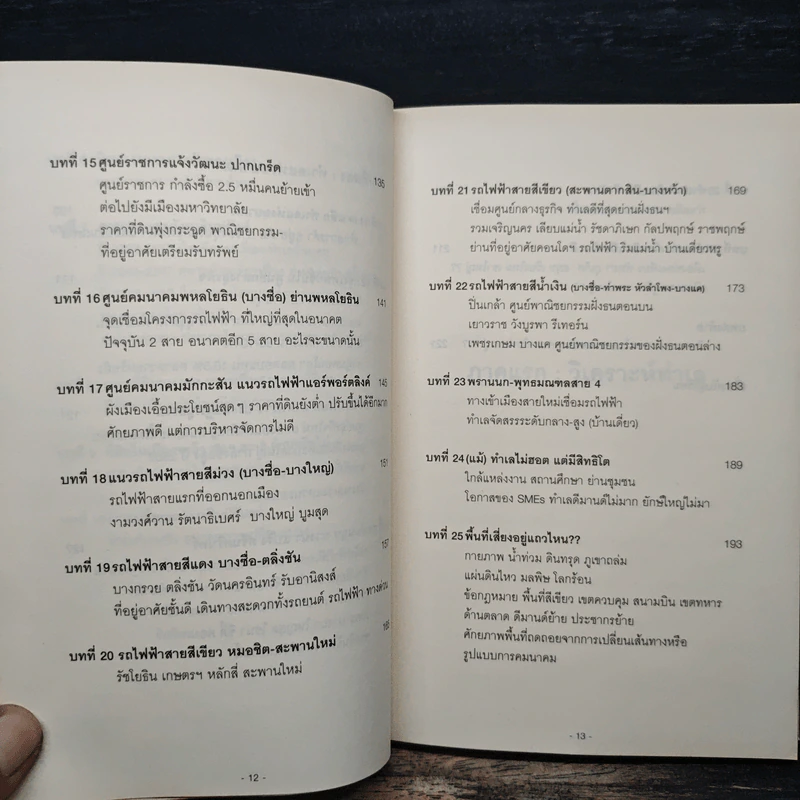 บทที่ 15 ศูนย์ราชการแจ้งวัฒนะ ปากเกร็ด 135
ศูนย์ราชการ กำลังซื้อ 2.5 หมื่นคนย้ายเข้า
ต่อไปยังมีเมืองมหาวิทยาลัย
ราคาที่ดินพุ่งกระฉูด พาณิชยกรรม-
ที่อยู่อาศัยเตรียมรับทรัพย์
บทที่ 16 ศูนย์คมนาคมพหลโยธิน (บางซื่อ) ย่านพหลโยธิน 141
จุดเชื่อมโครงการรถไฟฟ้า ที่ใหญ่ที่สุดในอนาคต
ปัจจุบัน 2 สาย อนาคตอีก 5 สาย อะไรจะขนาดนั้น
บทที่ 17 ศูนย์คมนาคมมักกะสัน แนวรถไฟฟ้าแอร์พอร์ตลิงค์ 145
ผังเมืองเอื้อประโยชน์สุดๆ ราคาที่ดินยังต่ำ ปรับขึ้นได้อีกมาก
ศักยภาพดี แต่การบริหารจัดการไม่ดี
บทที่ 18 แนวรถไฟฟ้าสายสีม่วง (บางซื่อ-บางใหญ่) 151
รถไฟฟ้าสายแรกที่ออกนอกเมือง
งามวงศ์วาน รัตนาธิเบศร์ บางใหญ่ บูมสุด
บทที่ 19 รถไฟฟ้าสายสีแดง บางซื่อ-ตลิ่งชัน 157
บางกรวย ตลิ่งชัน วัดนครอินทร์ รับอานิสงส์
ที่อยู่อาศัยชั้นดี เดินทางสะดวกทั้งรถยนต์ รถไฟฟ้า ทางด่วน
บทที่ 20 รถไฟฟ้าสายสีเขียว หมอชิต-สะพานใหม่ 165
รัชโยธิน เกษตรฯ หลักสี่ สะพานใหม่
- 12 -
บทที่ 21 รถไฟฟ้าสายสีเขียว (สะพานตากสิน-บางหว้า) 169
เชื่อมศูนย์กลางธุรกิจ ทำเลดีที่สุดย่านฝั่งธนฯ
รวมเจริญนคร เลียบแม่น้ำ รัชดาภิเษก กัลปพฤกษ์ ราชพฤกษ์
ย่านที่อยู่อาศัยคอนโดฯ รถไฟฟ้า ริมแม่น้ำ บ้านเดี่ยวหรู
บทที่ 22 รถไฟฟ้าสายสีน้ำเงิน (บางซื่อ-ท่าพระ หัวลำโพง-บางแค) 173
ปิ่นเกล้า ศูนย์พาณิชยกรรมฝั่งธนตอนบน
เยาวราช วังบูรพา รีเทอร์น
เพชรเกษม บางแค ศูนย์พาณิชยกรรมของฝั่งธนตอนล่าง
บทที่ 23 พรานนก-พุทธมณฑลสาย 4 183
ทางเข้าเมืองสายใหม่เชื่อมรถไฟฟ้า
ทำเลจัดสรรระดับกลาง-สูง (บ้านเดี่ยว)
บทที่ 24 (แม้) ทำเลไม่ฮอต แต่มีสิทธิโต 189
ใกล้แหล่งงาน สถานศึกษา ย่านชุมชน
โอกาสของ SMEs ทำเลดีมานด์ไม่มาก ยักษ์ใหญ่ไม่มา
บทที่ 25 พื้นที่เสี่ยงอยู่แถวไหน?? 193
กายภาพ น้ำท่วม ดินทรุด ภูเขาถล่ม
แผ่นดินไหว มลพิษ โลกร้อน
ข้อกฎหมาย พื้นที่สีเขียว เขตควบคุม สนามบิน เขตทหาร
ด้านตลาด ดีมานด์ย้าย ประชากรย้าย
ศักยภาพพื้นที่ถดถอยจากการเปลี่ยนเส้นทางหรือ
รูปแบบการคมนาคม
- 13 -